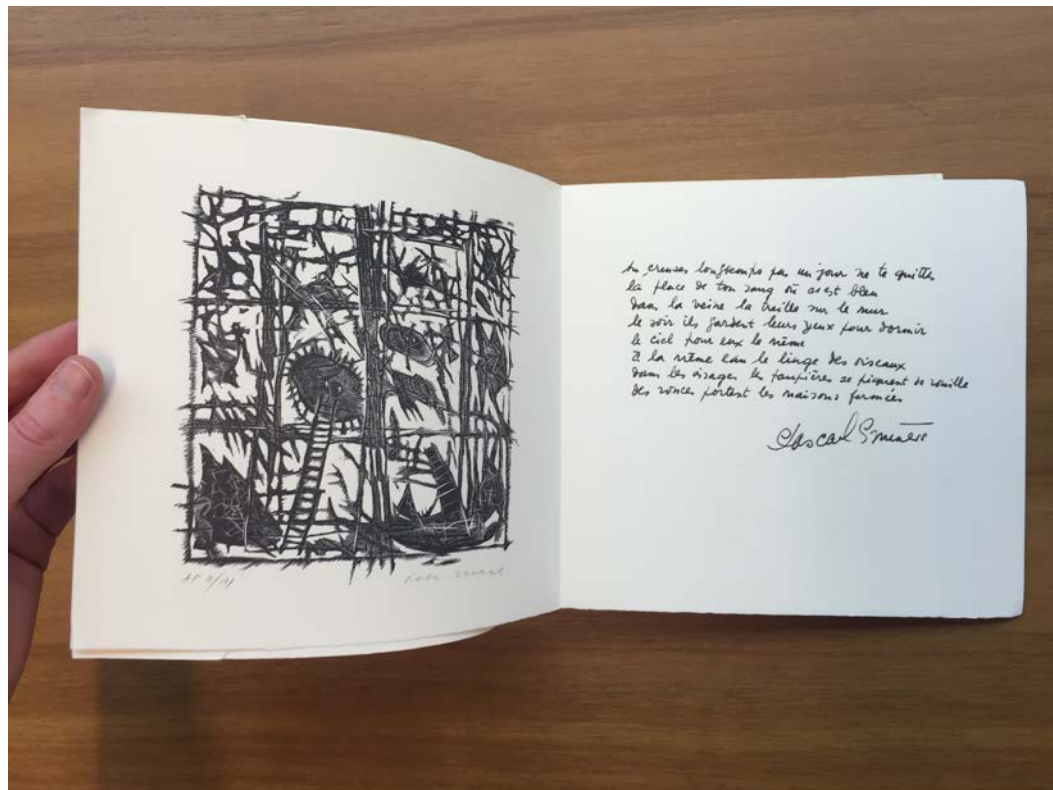 tu creuses longtemps pas un jour ne te quitte
la place de ton sang où c'est bleu
dans la veine la treille sur le mur
le soir ils gardent leurs yeux pour dormir
le ciel pour eux le même
à la même eau le linge des oiseaux
dans les visages les paupières se piquent de rouille
des ronces portent les maisons fermées
Pascal
AP II/III